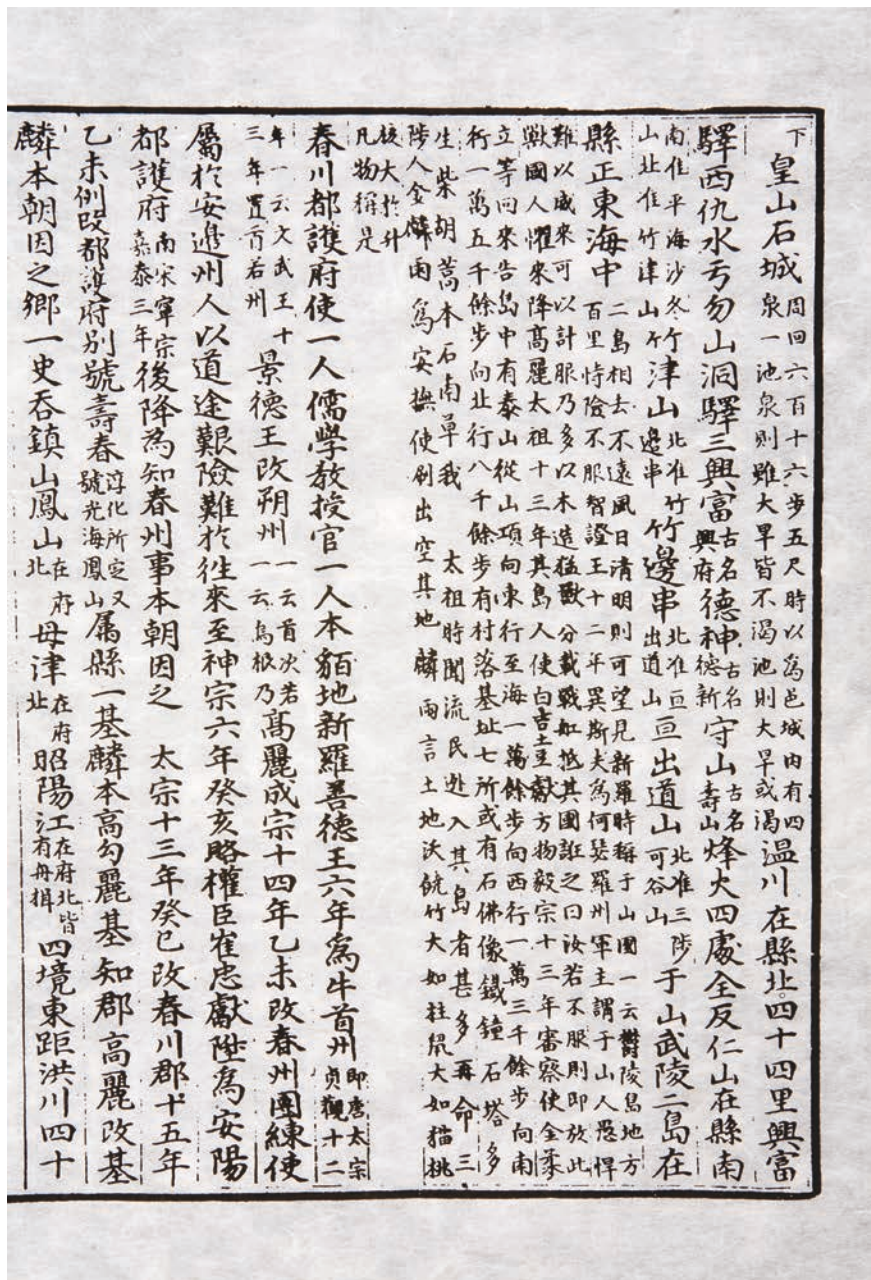 下皇山石城周回六百十六步五尺時以爲邑城內有四泉一池泉則雖大旱皆不渴池則大旱或渴温川在縣北四十四里興富
驛西仇水亐勿山洞驛三興富古名興府德神古名德新守山古名壽山烽火四處全反仁山在縣南
南准平海沙冬山北准竹津山竹津山北准竹邊串竹邊串北准亘出道山亘出道山北准三陟可谷山于山武陵二島在
縣正東海中二島相去不遠風日清明則可望見新羅時稱于山國一云鬱陵島地方百里恃險不服智證王十二年異斯夫爲何瑟羅州軍主謂于山人愚悍
難以威來可以計服乃多以木造猛獸分載戰舡抵其國誑之曰汝若不服則即放此
獸國人懼來降高麗太祖十三年其島人使白吉土豆獻方物毅宗十三年審察使金柔
立等回來告島中有泰山從山頂向東行至海一萬餘步向西行一萬三千餘步向南
行一萬五千餘步向北行八千餘步有村落基址七所或有石佛像鐵鐘石塔多
生柴胡蒿本石南草我 太祖時聞流民逃入其島者甚多再命三
陟人金麟雨爲安撫使刷出空其地麟雨言土地沃饒竹大如柱鼠大如猫桃
核大於升凡物稱是
春川都護府使一人儒學敎授官一人本貊地新羅善德王六年爲牛首州即唐太宗貞觀十二
年一云文武王十三年置首若州景德王改朔州一云首次若一云烏根乃高麗成宗十四年乙未改春州團練使
屬於安邊州人以道途艱險難於徃來至神宗六年癸亥賂權臣崔忠獻陞為安陽
都護府南宋寧宗嘉泰三年後降為知春州事本朝因之 太宗十三年癸巳改春川郡十五年
乙未例改都護府別號壽春淳化所定又號光海鳳山屬縣一基麟本高勾麗基知郡高麗改基
麟本朝因之鄉一史呑鎮山鳳山在府北母津在府北昭陽江在府北皆有舟楫四境東距洪川四十